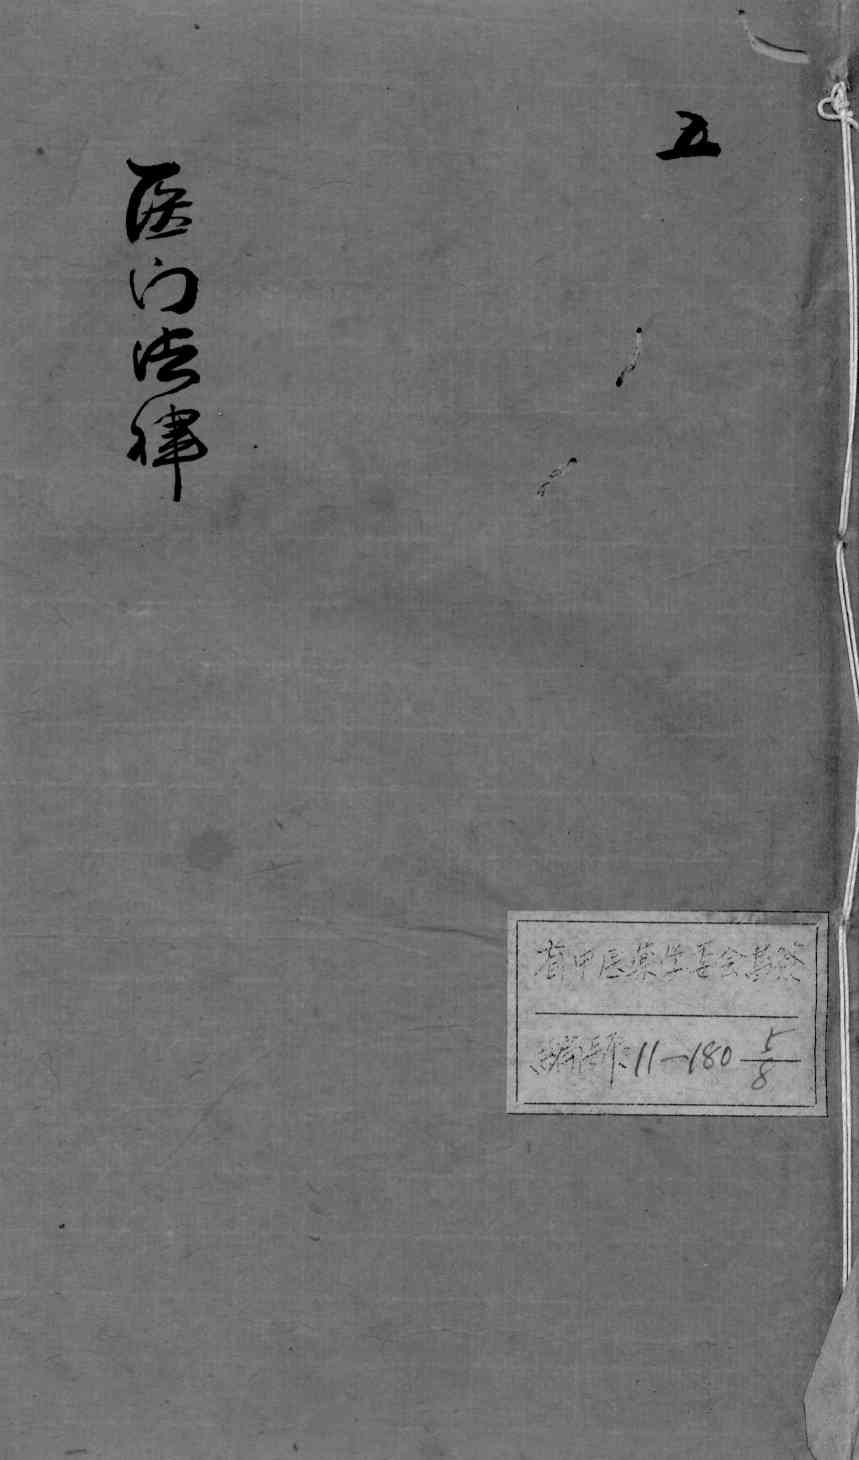 五
医门法律
省中医药学委会基藏
编号:11—180 5/8